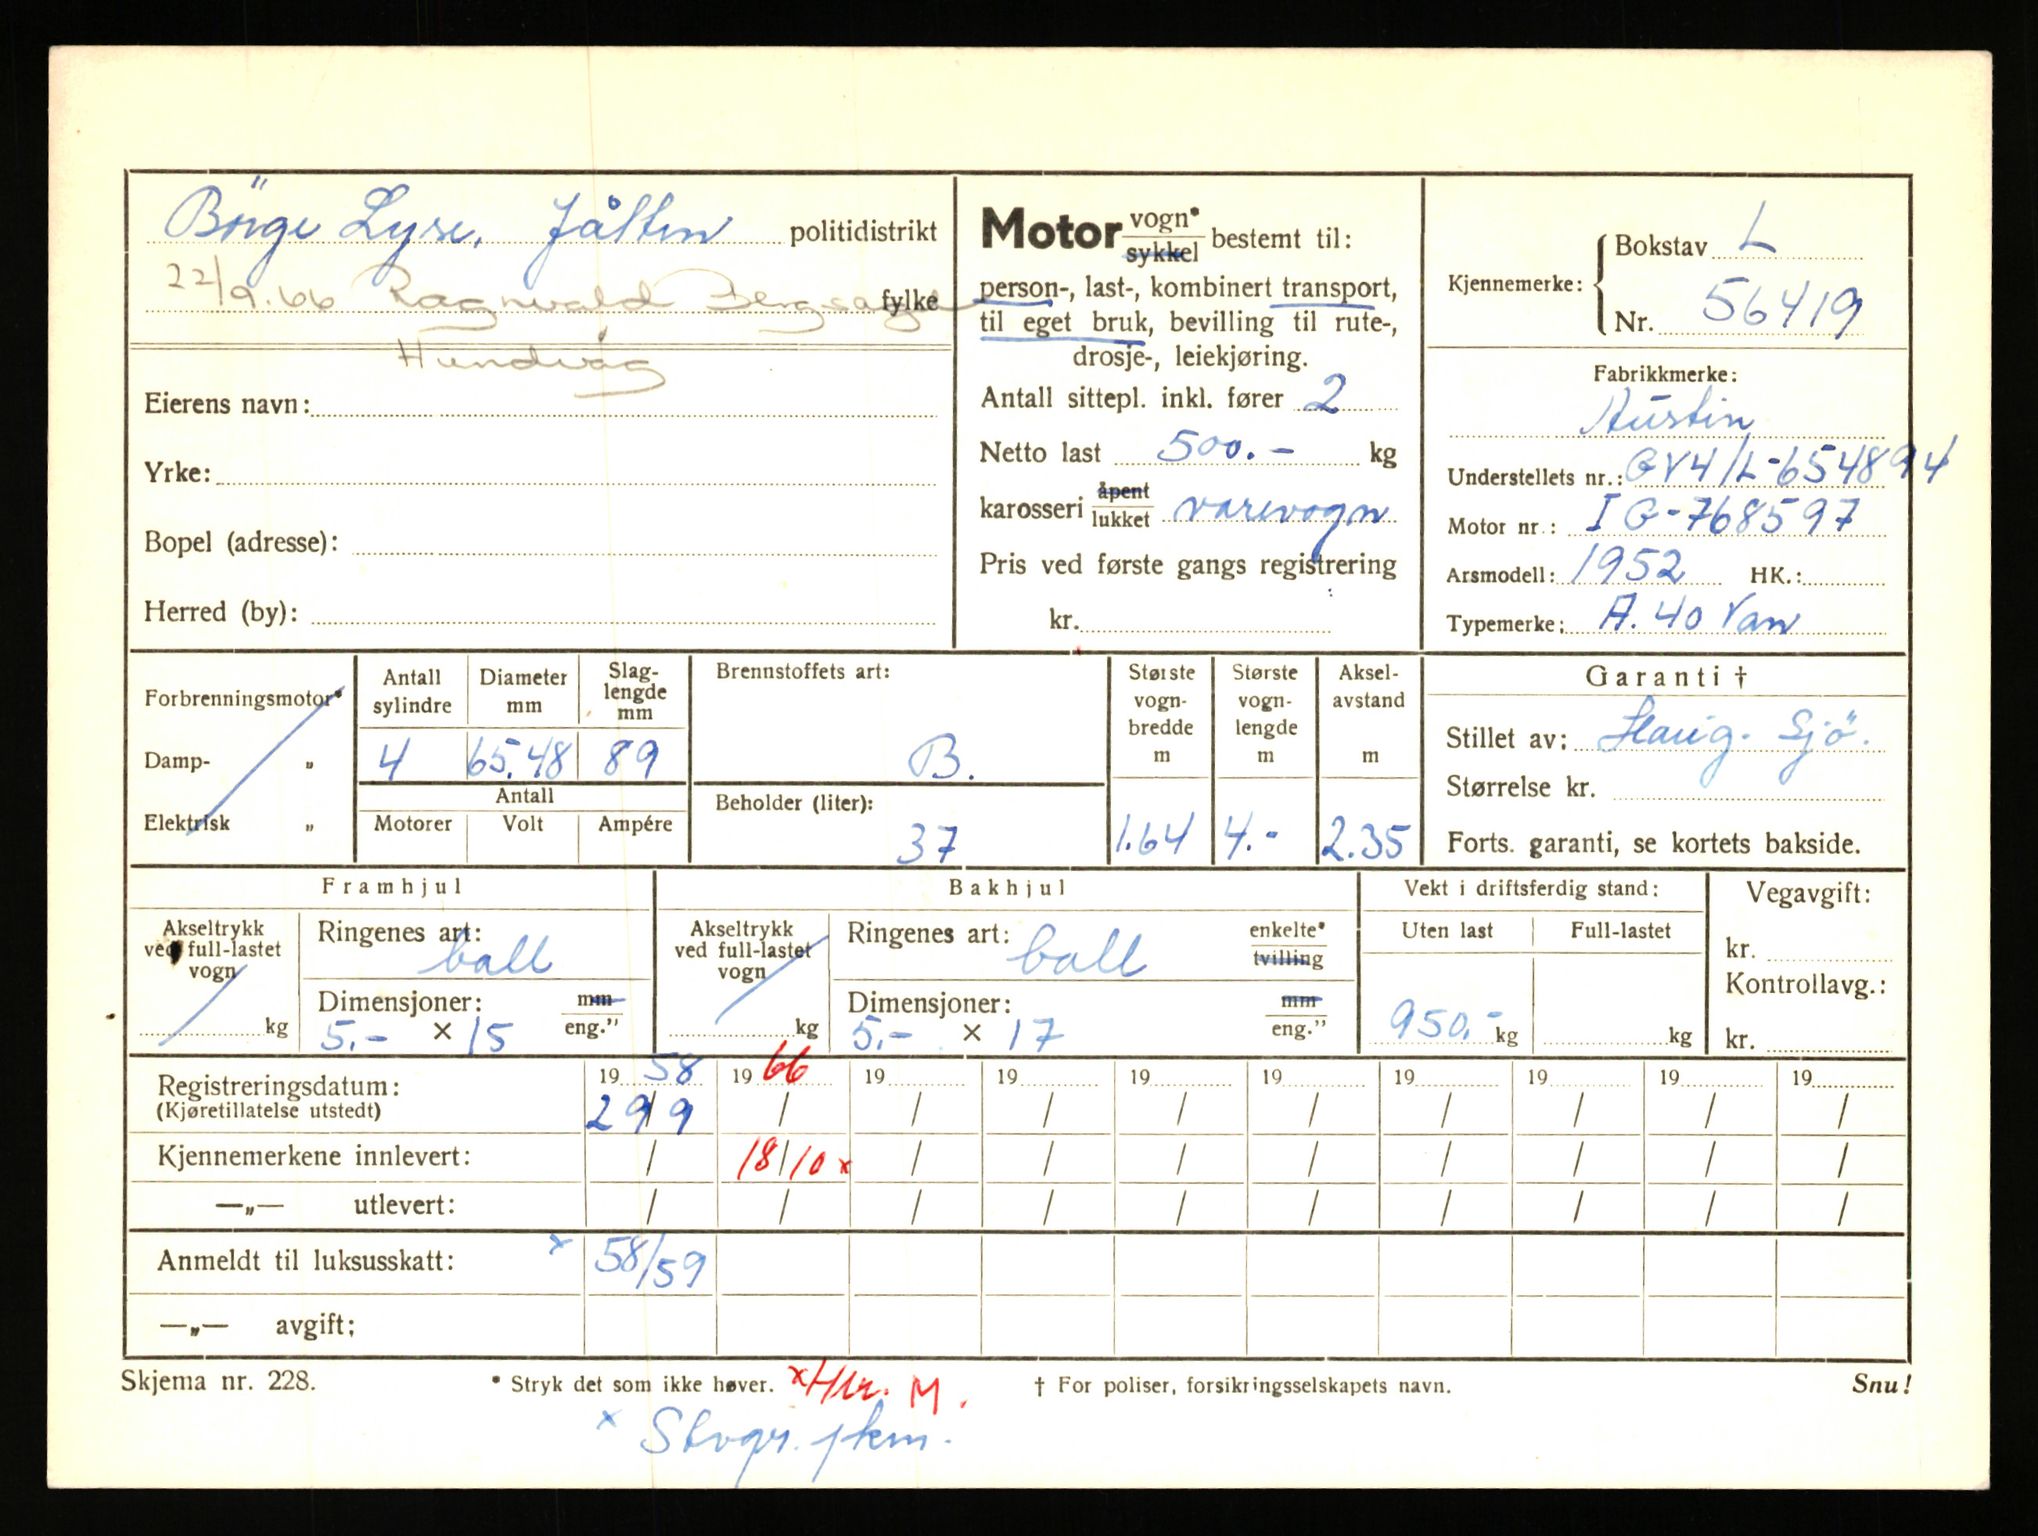 Börge Lyse, Jåttin politidistrikt
22/9.66 Ragnvald Bergsagel fylke
Hundvåg
Eierens navn:
Yrke:
Bopel (adresse):
Herred (by):
Motor vogn* sykkel bestemt til:
person-, last-, kombinert transport,
til eget bruk, bevilling til rute-,
drosje-, leiekjøring.
Antall sittepl. inkl. fører 2
Netto last 500.- kg
karosseri åpent lukket varevogn
Pris ved første gangs registrering
kr.
Kjennemerke: Bokstav L
Nr. 56419
Fabrikkmerke:
Austin
Understellets nr.: GV4/L-654894
Motor nr.: IG-768597
Arsmodell: 1952 HK.:
Typemerke: A.40 Van
Forbrenningsmotor*
Damp- „
Elektrisk „
Antall sylindre Diameter mm Slaglengde mm
4 65.48 89
Antall
Motorer Volt Ampére
Brennstoffets art:
B.
Beholder (liter):
37
Største vogn-bredde m Største vogn-lengde m Aksel-avstand m
1.64 4.- 2.35
Garanti †
Stillet av: Haug. Sjö.
Størrelse kr.
Forts. garanti, se kortets bakside.
Framhjul
Akseltrykk ved full-lastet vogn kg
Ringenes art: ball
Dimensjoner: mm eng."
5.- × 15
Bakhjul
Akseltrykk ved full-lastet vogn kg
Ringenes art: ball enkelte* tvilling
Dimensjoner: mm eng."
5.- × 17
Vekt i driftsferdig stand:
Uten last Full-lastet
950.- kg kg
Vegavgift:
kr.
Kontrollavg.:
kr.
Registreringsdatum: 19 58 19 66 19 19 19 19 19 19 19 19
(Kjøretillatelse utstedt) 29/9 / / / / / / / / /
Kjennemerkene innlevert: / 18/10 x / / / / / / / /
—„— utlevert: / / / / / / / / / /
Anmeldt til luksusskatt: x 58/59
—„— avgift:
Skjema nr. 228. * Stryk det som ikke høver. x Hkr. M. † For poliser, forsikringsselskapets navn. Snu!
x Stvgr. pkm.